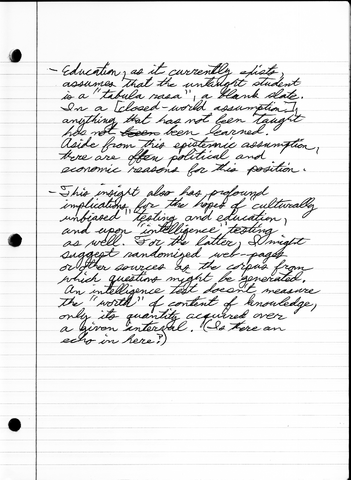 - Education, as it currently exists,
assumes that the untaught student
is a "tabula rasa", a blank slate.
In a [closed-world assumption],
anything that has not been taught
has not been learned.
Aside from this epistemic assumption,
there are often political and
economic reasons for this position.
- This insight also has profound
implications for the hopes of culturally
unbiased testing and education,
and upon "intelligence" testing
as well. For the latter, I might
suggest randomized web-pages
or other sources as the corpus from
which questions might be generated.
An intelligence test doesn't measure
the "worth" of content of knowledge,
only its quantity acquired over
a given interval. (Is there an
echo in here?)